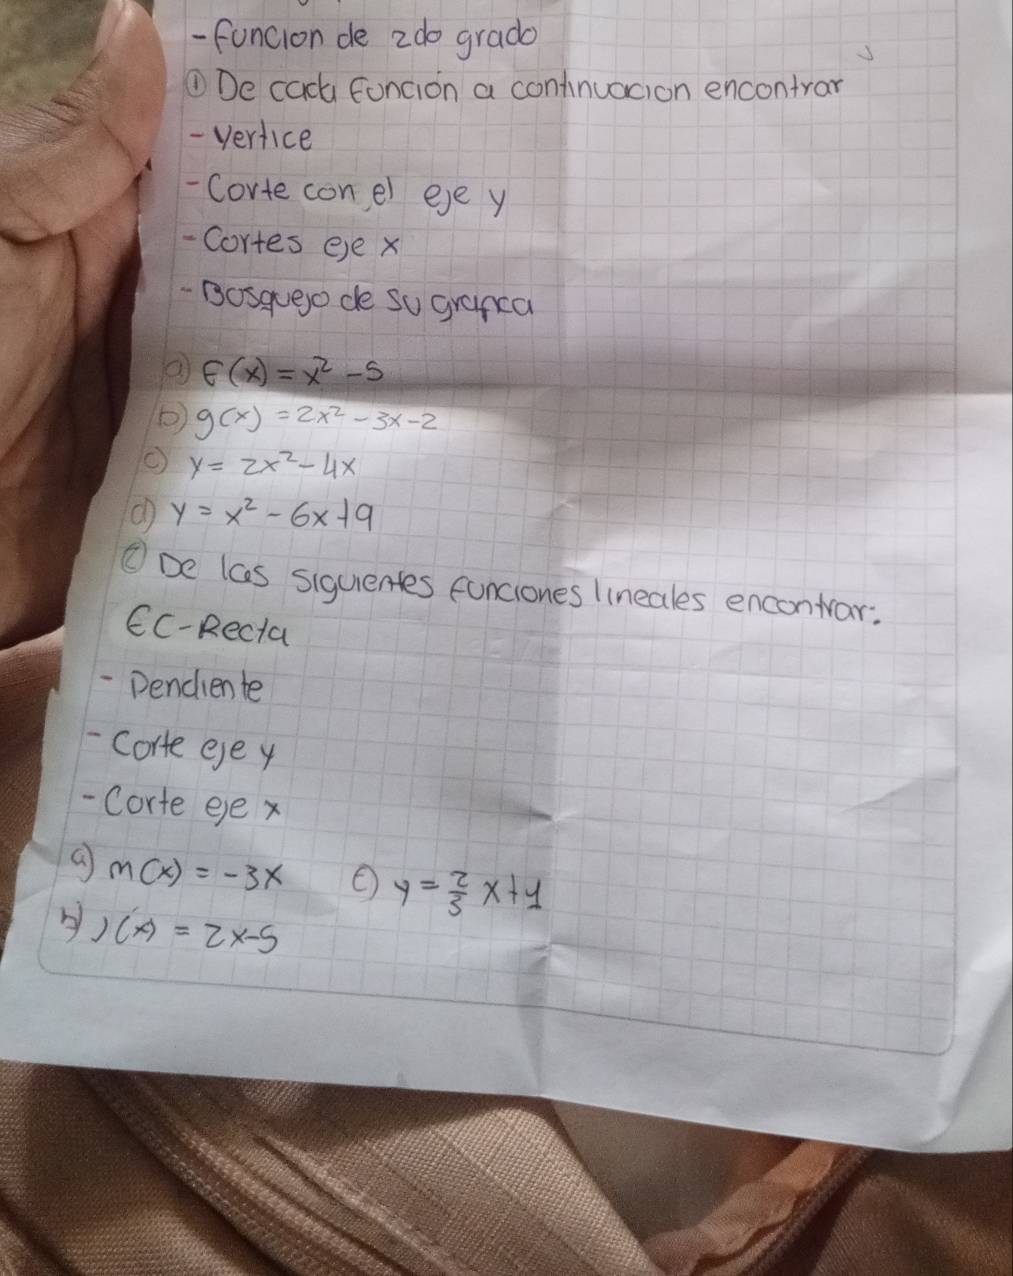 - Funcion de 2do grado
① De cada función a continuacion encontrar
- vertice
- Corte con el eje y
- Cortes eje x
- Bosquejo de su grafica
a) F(x) = x² - 5
b) g(x) = 2x² - 3x - 2
c) y = 2x² - 4x
d) y = x² - 6x + 9
② De las siguientes funciones lineales encontrar:
EC-Recta
- Pendiente
- Corte eje y
- Corte eje x
a) m(x) = -3x c) y = 2/3 x + 1
b) j(x) = 2x - 5